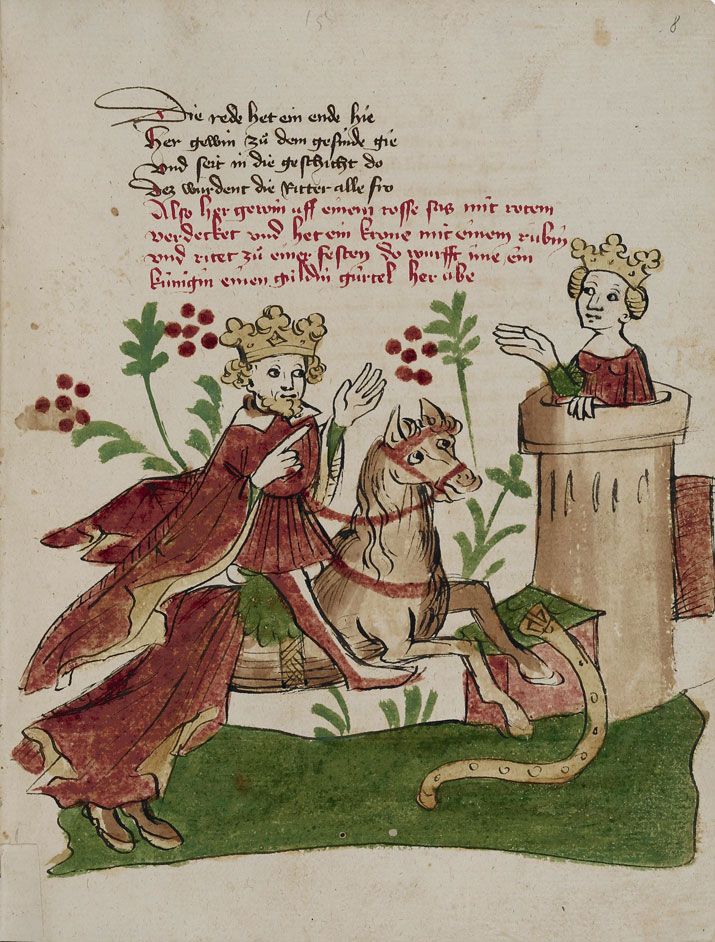 8
Die rede het ein ende hie
Her gewin zů dem gesinde gie
Vnd seit in die geschicht do
Dez wurdent die Ritter alle fro
Also her gewin uff einem rosse sas mit rotem
verdecket vnd het ein krone mit einem rubin
vnd ritet zů einer festen do wurfft ime ein
künigin einen guldin gürtel her abe